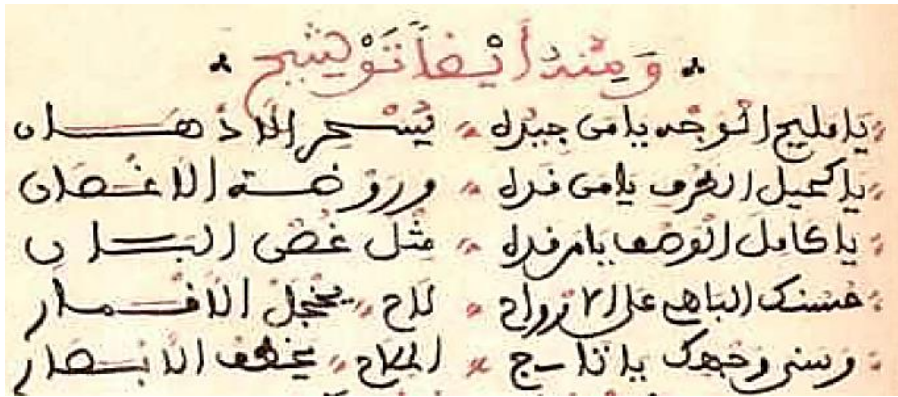 وَمِنْهُ أَيْضًا تَوْشِيح
يا مليح الوجه يا من جيده يُسْحِر الاذهان
يا كحيل الطرف يا من قده وروضة الاغصان
يا كامل الوصف يا من قده مثل غصن البان
حسنك الباهي على الارواح لاح يخجل الاقمار
وسنى وجهك يا تا الملاح يخطف الابصار